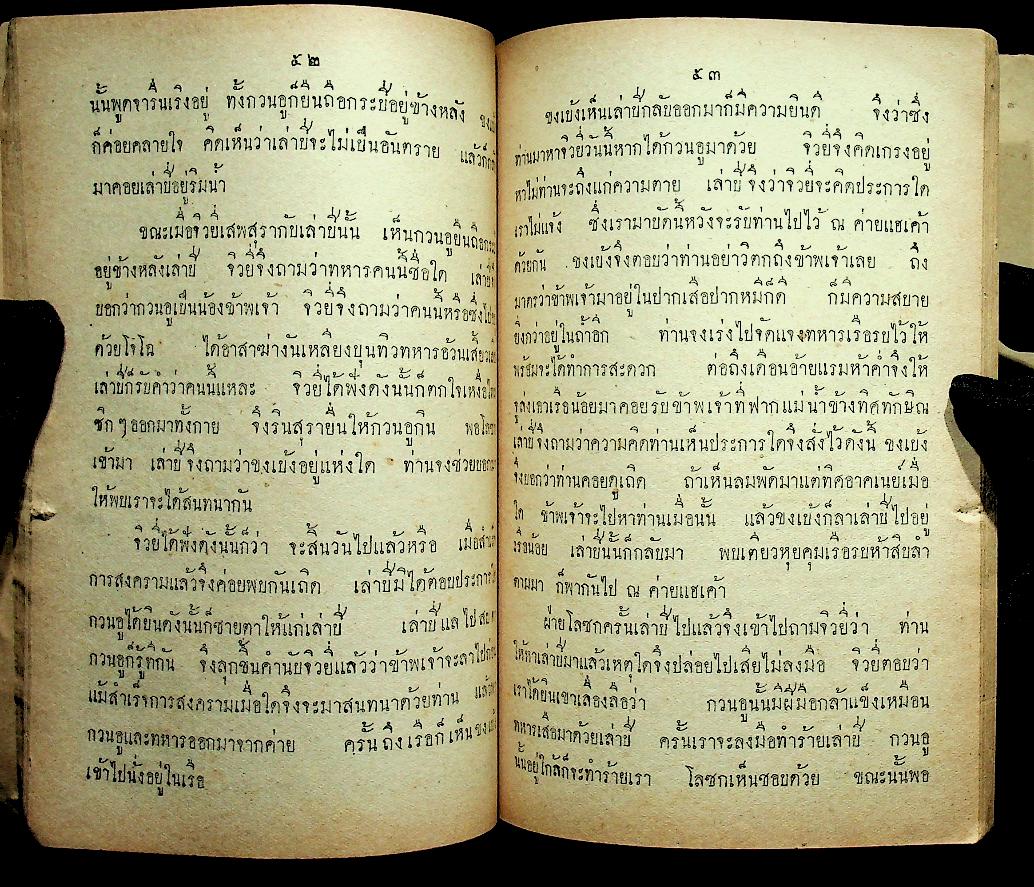 ๕๒
นั้นพูดจารื่นเริงอยู่ ทั้งกวนอูก็ยืนถือกระบี่อยู่ข้างหลัง
ก็ค่อยคลายใจ คิดเห็นว่าเล่าปี่จะไม่เป็นอันตราย แล้วก็
มาคอยเล่าปี่อยู่ริมน้ำ
ขณะเมื่อจิวยี่เสพสุรากับเล่าปี่นั้น เห็นกวนอูยืนถือ
อยู่ข้างหลังเล่าปี่ จิวยี่จึงถามว่าทหารคนนี้ชื่อใด
บอกว่ากวนอูเป็นน้องข้าพเจ้า จิวยี่จึงถามว่าคนนี้หรือซึ่ง
ด้วยโจโฉ ได้อาสาฆ่างันเหลียงบุนทิวทหารอ้วนเสี้ยว
เล่าปี่ก็รับคำว่าคนนี้แหละ จิวยี่ได้ฟังดังนั้นก็ตกใจเหงื่อ
ซิก ๆ ออกมาทั้งกาย จึงรินสุรายื่นให้กวนอูกิน
เข้ามา เล่าปี่จึงถามว่าขงเบ้งอยู่แห่งใด ท่านจงช่วยบอก
ให้พบเราจะได้สนทนากัน
จิวยี่ได้ฟังดังนั้นก็ว่า จะสิ้นวันไปแล้วหรือ
การสงครามแล้วจึงค่อยพบกันเถิด เล่าปี่มิได้ตอบประการ
กวนอูได้ยินดังนั้นก็ชายตาให้แก่เล่าปี่ เล่าปี่แลไป
กวนอูก็รู้ทีกัน จึงลุกขึ้นคำนับจิวยี่แล้วว่าข้าพเจ้าจะลาไป
แม้สำเร็จการสงครามเมื่อใดจึงจะมาสนทนาด้วยท่าน
กวนอูและทหารออกมาจากค่าย ครั้นถึงเรือก็เห็น
เข้าไปนั่งอยู่ในเรือ
๕๓
ขงเบ้งเห็นเล่าปี่กลับออกมาก็มีความยินดี จึงว่าซึ่ง
ท่านมาหาจิวยี่วันนี้หากได้กวนอูมาด้วย จิวยี่จึงคิดเกรงอยู่
หาไม่ท่านจะถึงแก่ความตาย เล่าปี่จึงว่าจิวยี่จะคิดประการใด
เราไม่แจ้ง ซึ่งเรามาบัดนี้หวังจะรับท่านไปไว้ ณ ค่ายแฮเค้า
ด้วยกัน ขงเบ้งจึงตอบว่าท่านอย่าวิตกถึงข้าพเจ้าเลย ถึง
มาตรว่าข้าพเจ้ามาอยู่ในปากเสือปากหมีก็ดี ก็มีความสบาย
ยิ่งกว่าอยู่ในถ้ำอีก ท่านจงเร่งไปจัดแจงทหารเรือรบไว้ให้
พร้อมจะได้ทำการสะดวก ต่อถึงเดือนอ้ายแรมห้าค่ำจึงให้
จูล่งเอาเรือน้อยมาคอยรับข้าพเจ้าที่ฟากแม่น้ำข้างทิศทักษิณ
เล่าปี่จึงถามว่าความคิดท่านเห็นประการใดจึงสั่งไว้ดังนี้ ขงเบ้ง
จึงบอกว่าท่านคอยดูเถิด ถ้าเห็นลมพัดมาแต่ทิศอาคเนย์เมื่อ
ใด ข้าพเจ้าจะไปหาท่านเมื่อนั้น แล้วขงเบ้งก็ลาเล่าปี่ไปอยู่
เรือน้อย เล่าปี่นั้นก็กลับมา พบเตียวหุยคุมเรือรบห้าสิบลำ
ตามมา ก็พากันไป ณ ค่ายแฮเค้า
ฝ่ายโลซกครั้นเล่าปี่ไปแล้วจึงเข้าไปถามจิวยี่ว่า ท่าน
ให้หาเล่าปี่มาแล้วเหตุใดจึงปล่อยไปเสียไม่ลงมือ จิวยี่ตอบว่า
เราได้ยินเขาเลื่องลือว่า กวนอูนั้นมีฝีมือกล้าแข็งเหมือน
ทหารเสือมาด้วยเล่าปี่ ครั้นเราจะลงมือทำร้ายเล่าปี่ กวนอู
นั้นอยู่ใกล้ก็จะทำร้ายเรา โลซกเห็นชอบด้วย ขณะนั้นพอ